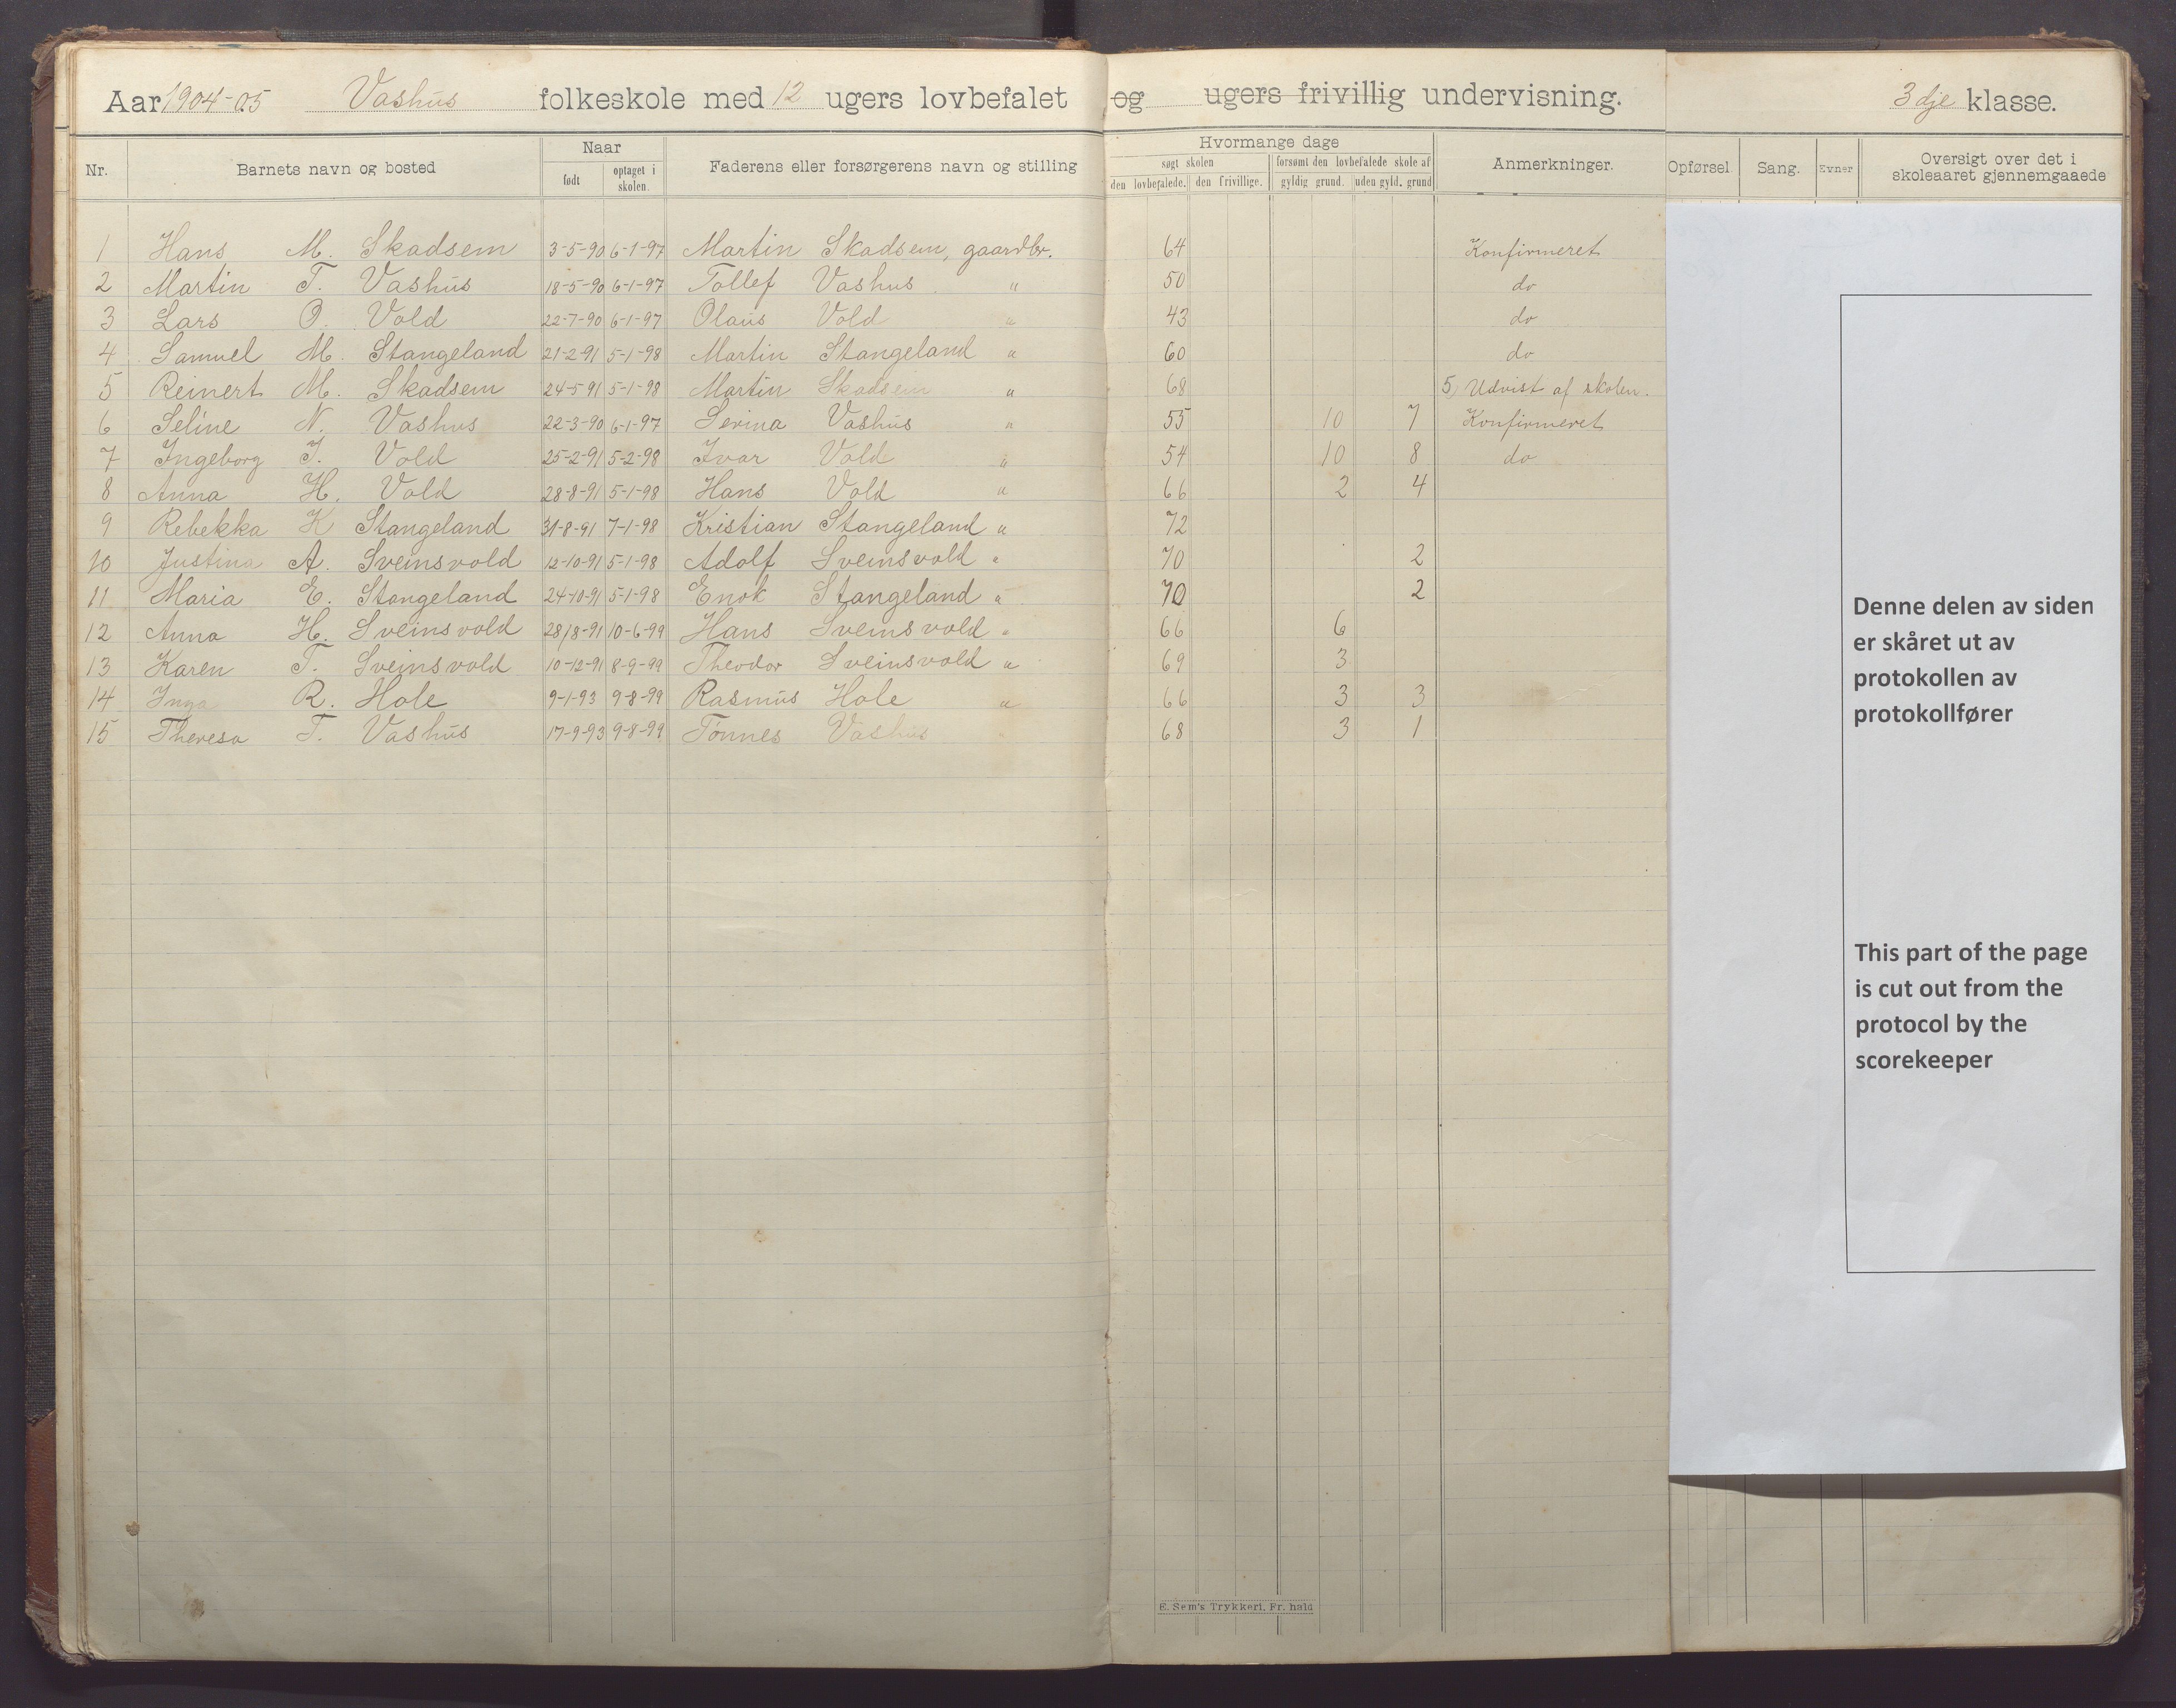 Aar 1904-05 Vashus folkeskole med 12 ugers lovbefalet og ugers frivillig undervisning. 3dje klasse.
Nr. Barnets navn og bosted Naar født optaget i skolen. Faderens eller forsørgerens navn og stilling Hvormange dage søgt skolen den lovbefalede. den frivillige. forsømt den lovbefalede skole af gyldig grund. uden gyld. grund Anmerkninger. Opførsel. Sang. Evner Oversigt over det i skoleaaret gjennemgaaede
1 Hans M. Skadsem 3-5-90 6-1-97 Martin Skadsem, gaardbr. 64 Konfirmeret
2 Martin T. Vashus 18-5-90 6-1-97 Tollef Vashus " 50 do
3 Lars O. Vold 22-7-90 6-1-97 Olaus Vold " 43 do
4 Samuel M. Stangeland 21-2-91 5-1-98 Martin Stangeland " 60 do
5 Reinert M. Skadsem 24-5-91 5-1-98 Martin Skadsem " 68 5) Udvist af skolen.
6 Seline N. Vashus 22-3-90 6-1-97 Serina Vashus " 55 10 7 Konfirmeret
7 Ingeborg I. Vold 25-2-91 5-2-98 Ivar Vold " 54 10 8 do
8 Anna H. Vold 28-8-91 5-1-98 Hans Vold " 66 2 4
9 Rebekka K Stangeland 31-8-91 7-1-98 Kristian Stangeland " 72
10 Justina A. Sveinsvold 12-10-91 5-1-98 Adolf Sveinsvold " 70 2
11 Maria E. Stangeland 24-10-91 5-1-98 Enok Stangeland " 70 2
12 Anna H. Sveinsvold 28/8-91 10-6-99 Hans Sveinsvold " 66 6
13 Karen T. Sveinsvold 10-12-91 8-9-99 Theodor Sveinsvold " 69 3
14 Inga R. Hole 9-1-93 9-8-99 Rasmus Hole " 66 3 3
15 Theresa T. Vashus 17-9-93 9-8-99 Tønnes Vashus 68 3 1
Denne delen av siden
er skåret ut av
protokollen av
protokollfører
This part of the page
is cut out from the
protocol by the
scorekeeper
E. Sem's Trykkeri, Fr. hald